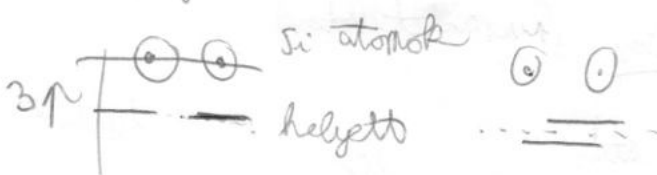 Si atomok
3p
helyett